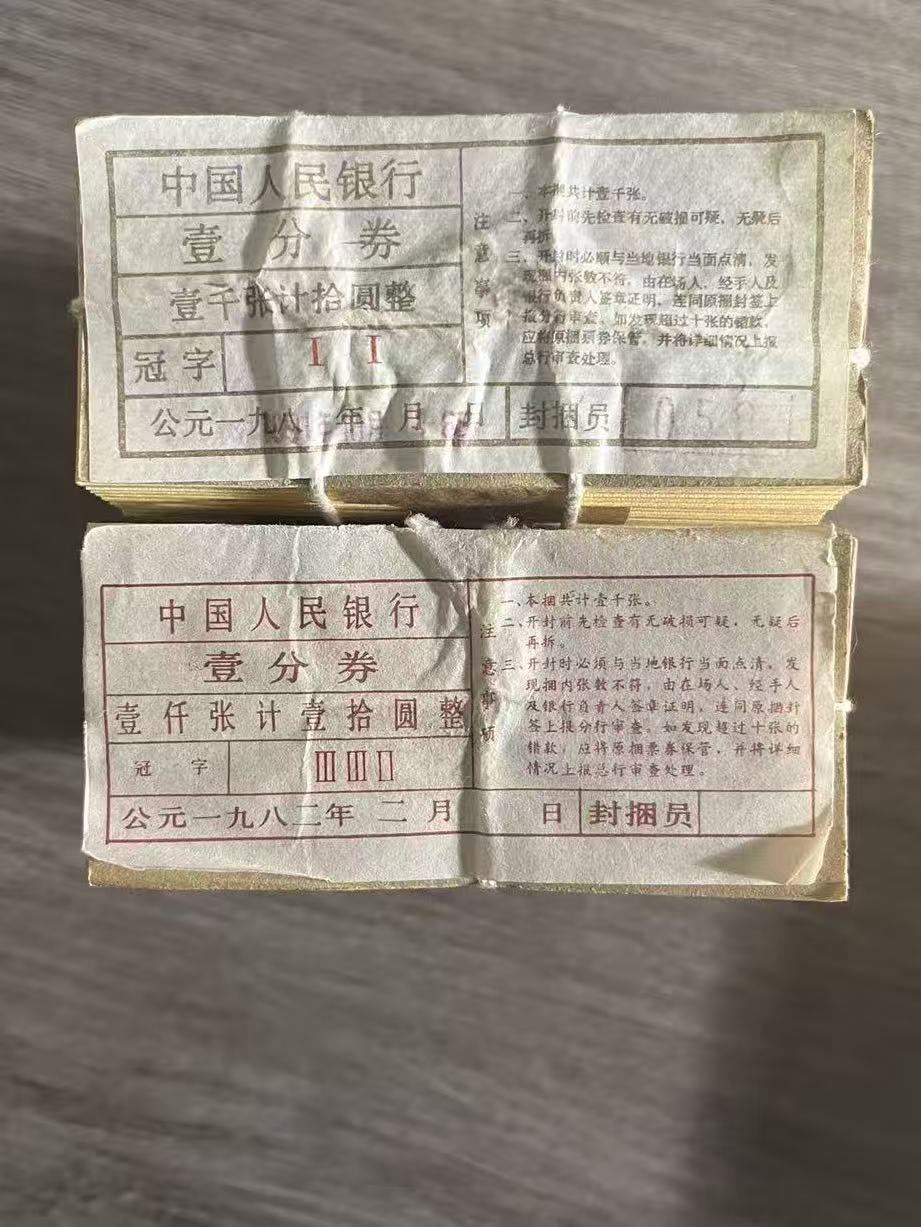 中国人民银行
壹分券
壹千张计拾圆整
冠字 I I
公元一九八 年 月 日 封捆员 0 5 9
注意事项
一、本捆共计壹千张。
二、开封前先检查有无破损可疑，无疑后
再拆
三、开封时必须与当地银行当面点清，发
现捆内张数不符，由在场人，经手人及
银行负责人签章证明，连同原捆封签上
报分行审查，如发现超过十张的错款，
应将原捆票券保管，并将详细情况上报
总行审查处理。
中国人民银行
壹分券
壹仟张计壹拾圆整
冠字 III III II
公元一九八二年 二月 日 封捆员
注意事项
一、本捆共计壹千张。
二、开封前先检查有无破损可疑，无疑后
再拆。
三、开封时必须与当地银行当面点清，发
现捆内张数不符，由在场人、经手人
及银行负责人签章证明，连同原捆封
签上报分行审查。如发现超过十张的
错款，应将原捆票券保管，并将详细
情况上报总行审查处理。